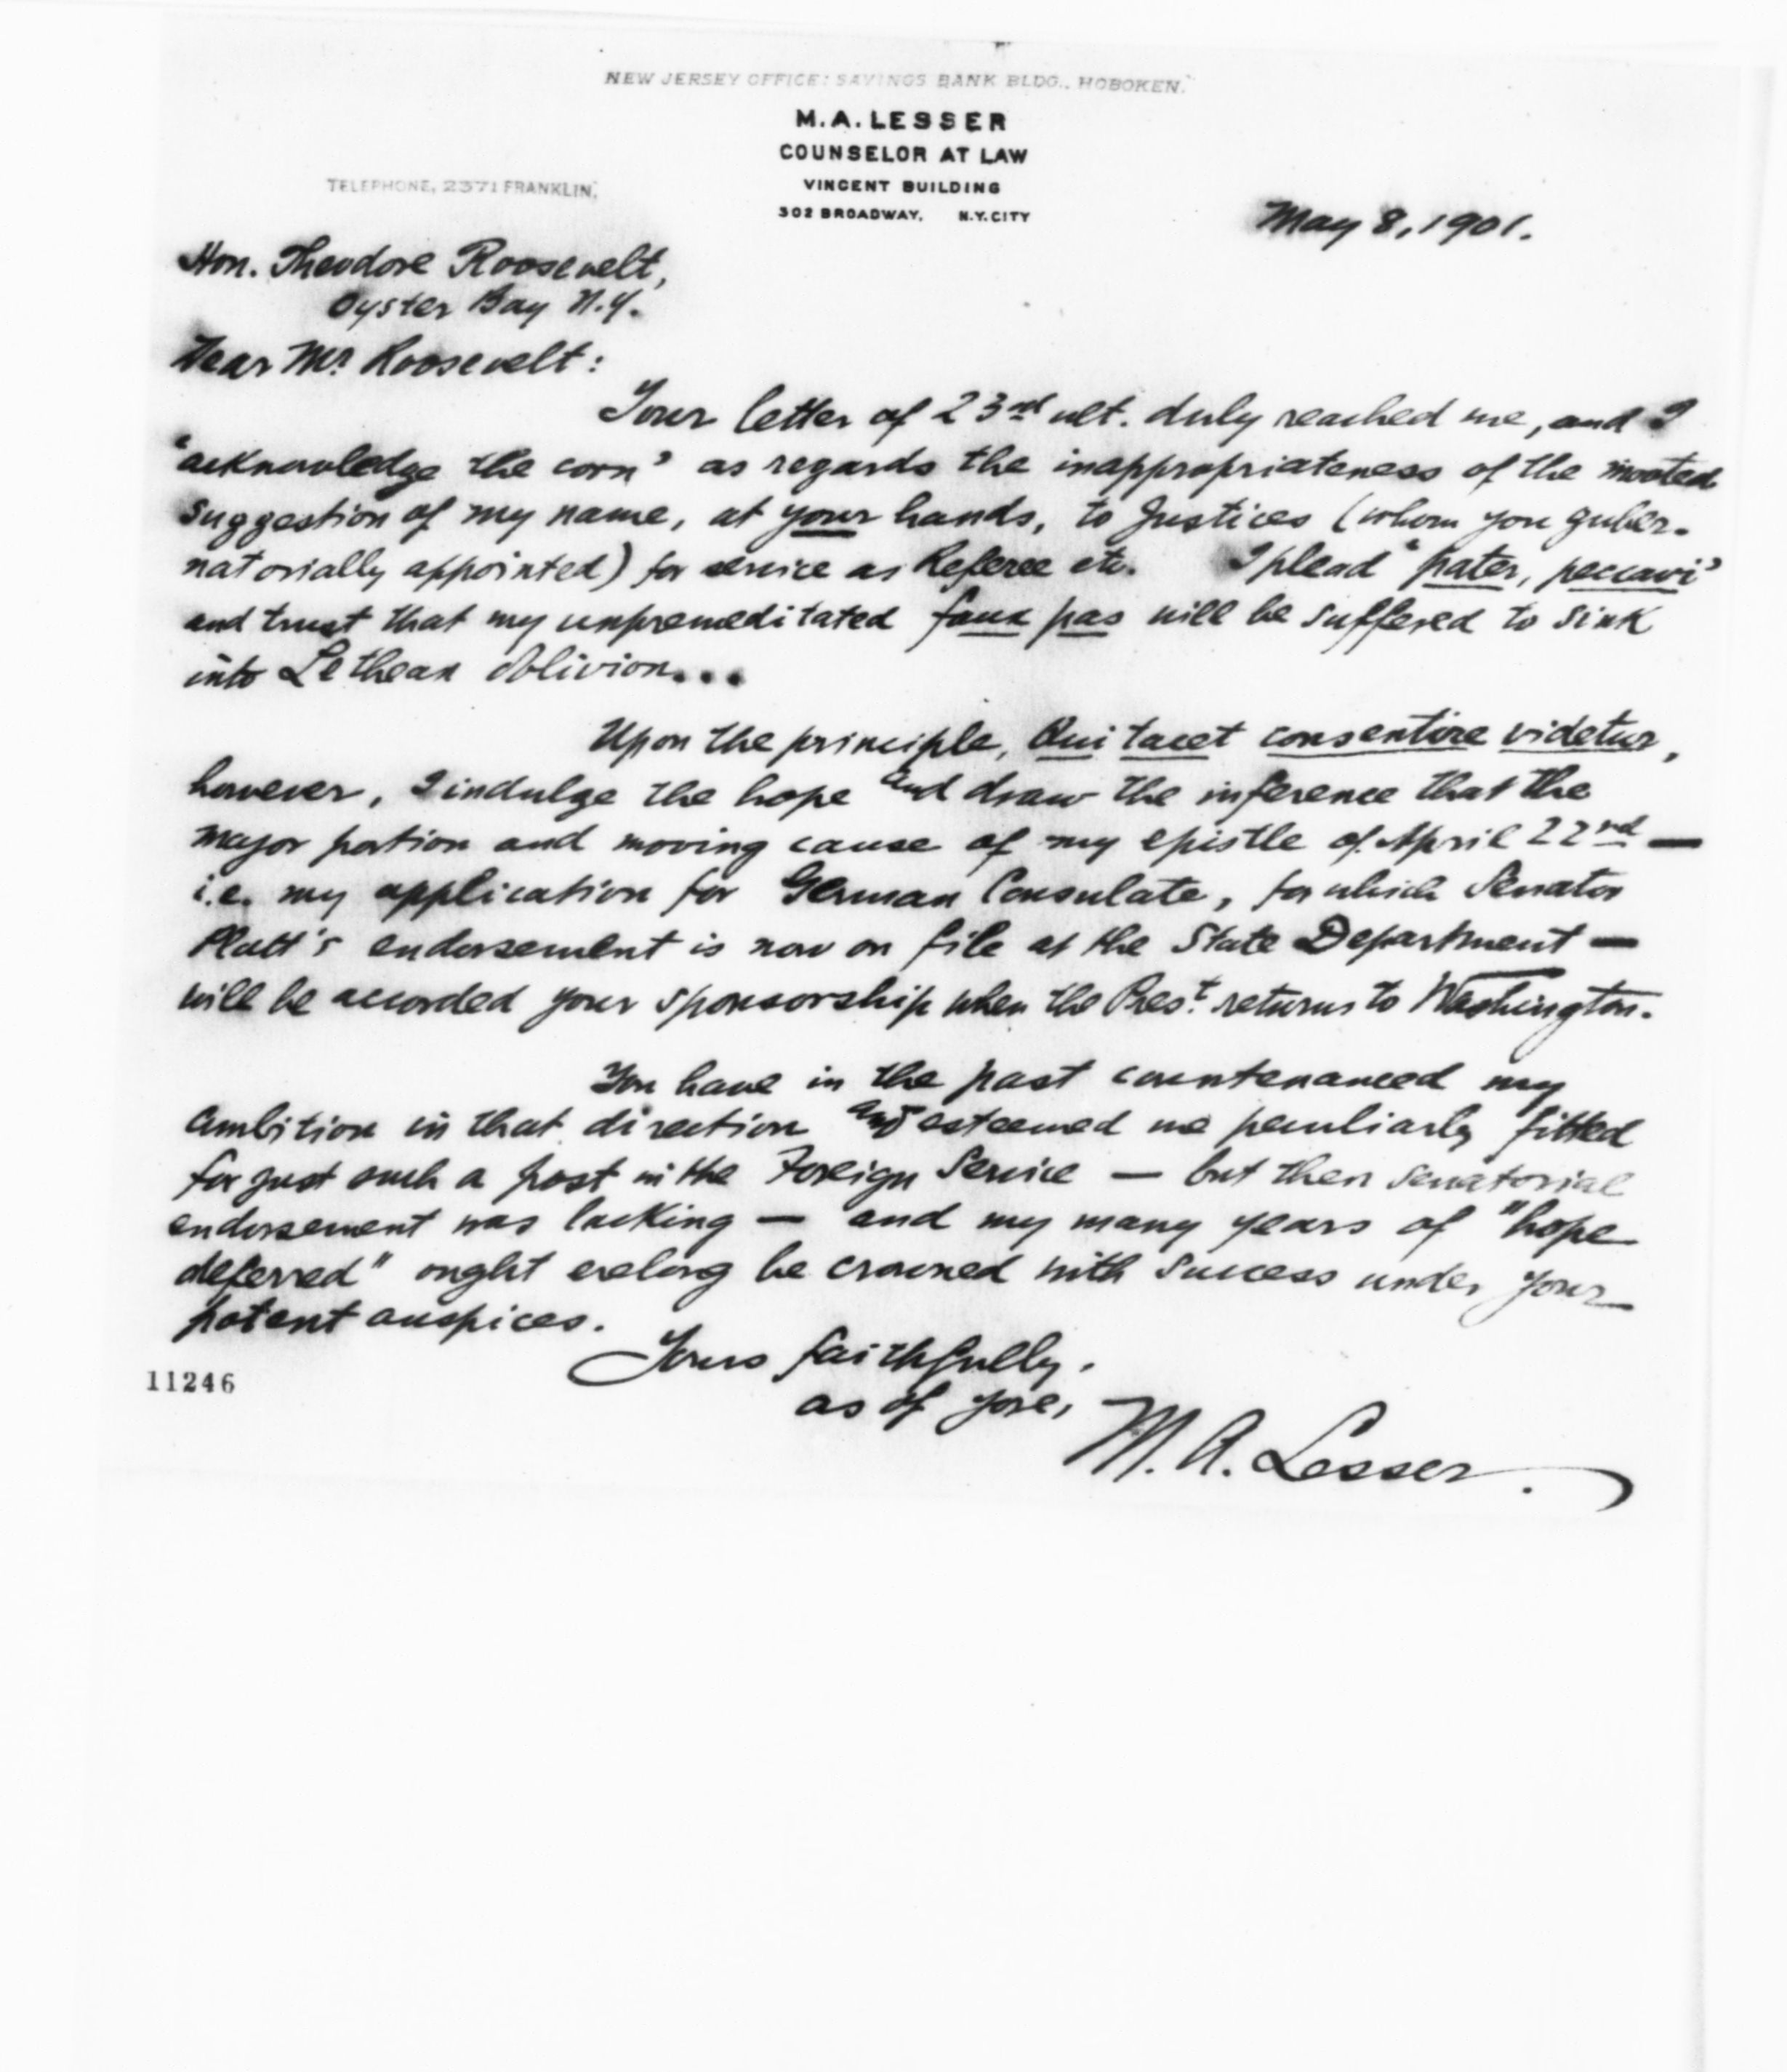 NEW JERSEY OFFICE: SAVINGS BANK BLDG., HOBOKEN.
M. A. LESSER
COUNSELOR AT LAW
VINCENT BUILDING
302 BROADWAY, N.Y. CITY
TELEPHONE, 2371 FRANKLIN.
May 8, 1901.
Hon. Theodore Roosevelt,
Oyster Bay N.Y.
Dear Mr. Roosevelt:
Your letter of 23rd ult. duly reached me, and I
"acknowledge the corn" as regards the inappropriateness of the mooted
suggestion of my name, at your hands, to Justices (whom you guber-
natorially appointed) for service as Referee etc. I plead "pater, peccavi"
and trust that my unpremeditated faux pas will be suffered to sink
into Lethean oblivion...
Upon the principle, Qui tacet consentire videtur,
however, I indulge the hope and draw the inference that the
major portion and moving cause of my epistle of April 22nd —
i.e. my application for German Consulate, for which Senator
Platt's endorsement is now on file at the State Department —
will be accorded your sponsorship when the Prest. returns to Washington.
You have in the past countenanced my
ambition in that direction and esteemed me peculiarly fitted
for just such a post in the Foreign Service — but then senatorial
endorsement was lacking — and my many years of "hope
deferred" ought erelong be crowned with success under your
potent auspices.
Yours faithfully,
as of yore,
M. A. Lesser.
11246